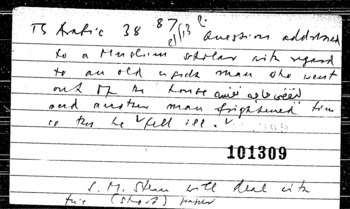 TS Arabic 38 87
Question addressed
to a Muslim scholar with regard
to an old man who went
out of the house
and another man frightened him
so that he fell ill.
101309
S. M. Stern will deal with
this (short) paper